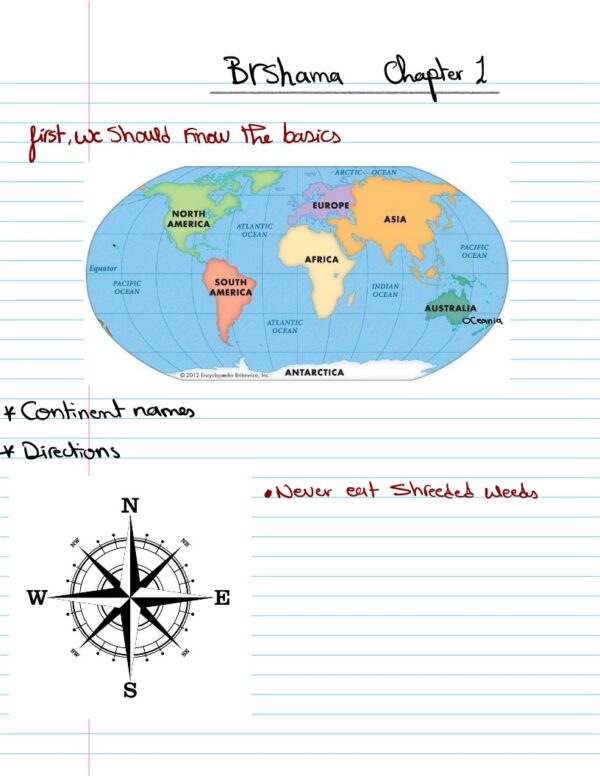 Brshama Chapter 1
first, we should know the basics
ARCTIC OCEAN
NORTH AMERICA
EUROPE
ASIA
ATLANTIC OCEAN
PACIFIC OCEAN
AFRICA
Equator
PACIFIC OCEAN
SOUTH AMERICA
INDIAN OCEAN
AUSTRALIA
Oceania
ATLANTIC OCEAN
ANTARCTICA
© 2012 Encyclopædia Britannica, Inc.
* Continent names
* Directions
• Never eat Shreeded weeds
N
NW NE
W E
SW SE
S